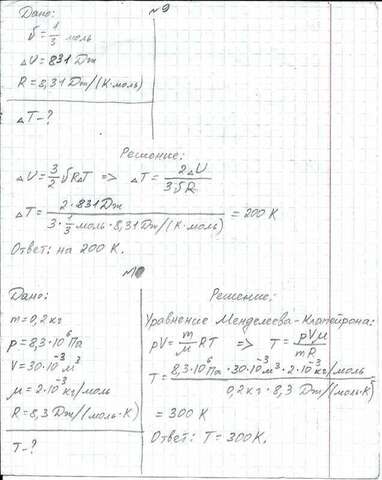 №9
Дано:
υ = 1/3 моль
ΔU = 831 Дж
R = 8,31 Дж/(К·моль)
ΔT - ?
Решение:
ΔU = 3/2 υRΔT => ΔT = 2ΔU / 3υR
ΔT = 2·831 Дж / 3·1/3 моль·8,31 Дж/(К·моль) = 200 К
Ответ: на 200 К.
Дано:
m = 0,2 кг
p = 8,3·10⁶ Па
V = 30·10⁻³ м³
μ = 2·10⁻³ кг/моль
R = 8,3 Дж/(моль·К)
T - ?
Решение:
Уравнение Менделеева-Клапейрона:
pV = m/μ RT => T = pVμ / mR
T = 8,3·10⁶ Па·30·10⁻³ м³·2·10⁻³ кг/моль / 0,2 кг·8,3 Дж/(моль·К)
= 300 К
Ответ: T = 300 К.